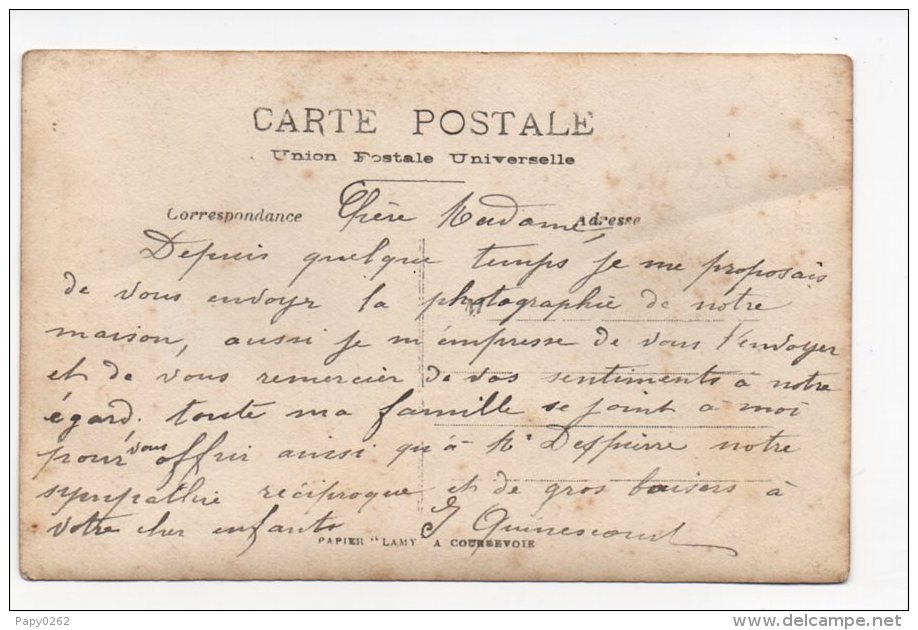 CARTE POSTALE
Union Postale Universelle
Correspondance
Adresse
Chère Madame
Depuis quelque temps je me proposais
de vous envoyer la photographie de notre
maison, aussi je m'empresse de vous l'envoyer
et de vous remercier de vos sentiments à notre
égard. toute ma famille se joint a moi
pour vous offrir ainsi qu'à Mr notre
sympathie réciproque et de gros baisers à
votre cher enfant
PAPIER "LAMY" A COURBEVOIE
Papy0262
delcampe.net